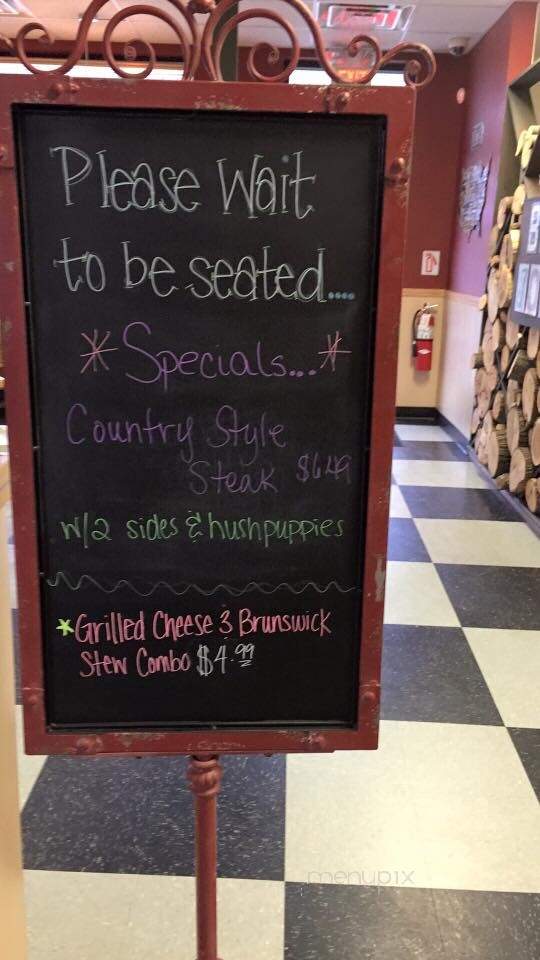 Please Wait
to be seated....
*Specials...*
Country Style
Steak $6.49
w/2 sides & hushpuppies
*Grilled Cheese & Brunswick
Stew Combo $4.99
menupix